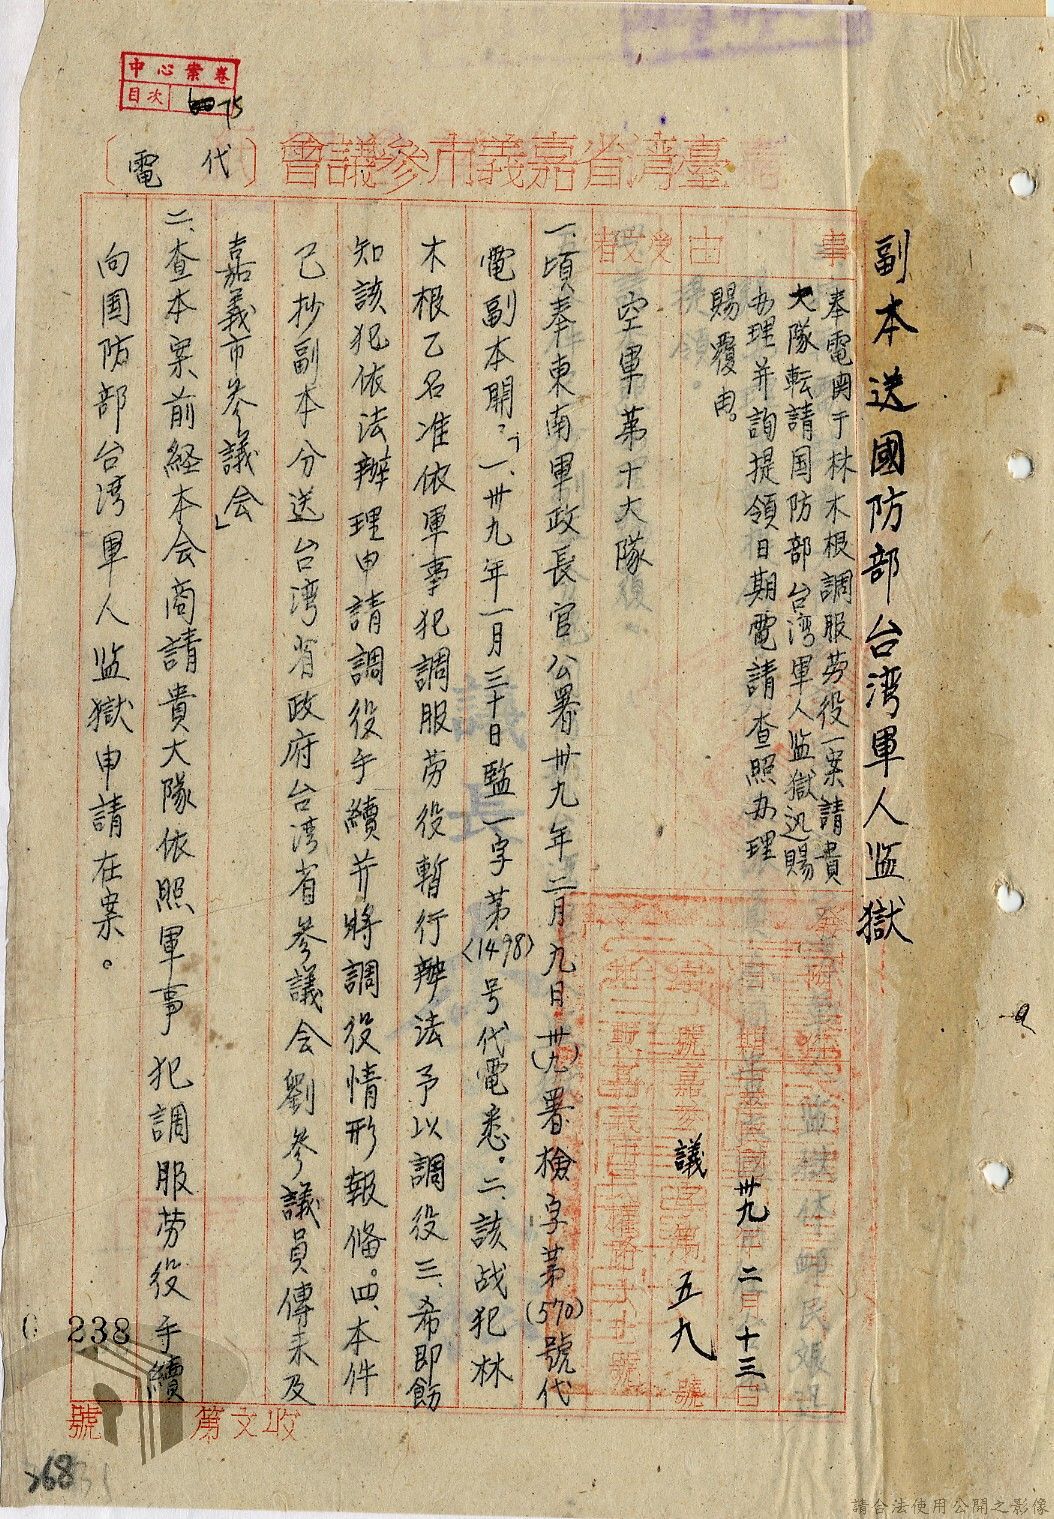 中心案卷
目次
75
臺灣省嘉義市參議會〔代電〕
副本送國防部台湾軍人监獄
事由
奉電関于林木根調服劳役一案請貴
大隊転請国防部台湾軍人监獄迅賜
办理并詢提領日期電請查照办理
賜覆由。
受
者
卅九年二月十三日
議
字第五九號
空軍第十大隊
一、頃奉東南軍政長官公署卅九年二月九日(卅九)署檢字第(570)號代
電副本開：「一、卅九年一月三十日監一字第(1498)号代電悉。二、該战犯林
木根乙名准依軍事犯調服劳役暫行辦法予以調役三、希即飭
知該犯依法辦理申請調役手續并將調役情形報備。四、本件
已抄副本分送台湾省政府台湾省參議会劉參議員傳来及
嘉義市參議会」
二、查本案前経本会商請貴大隊依照軍事犯調服劳役手續
向国防部台湾軍人监獄申請在案。
238
收文第號
368
請合法使用公開之影像